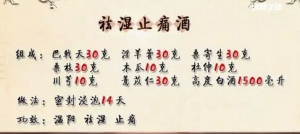 祛湿止痛酒
组成：巴戟天30克 淫羊藿30克 桑寄生30克
桑枝30克 木瓜10克 杜仲10克
川芎10克 薏苡仁30克 高度白酒1500毫升
做法：密封浸泡14天
功效：温阳 祛湿 止痛